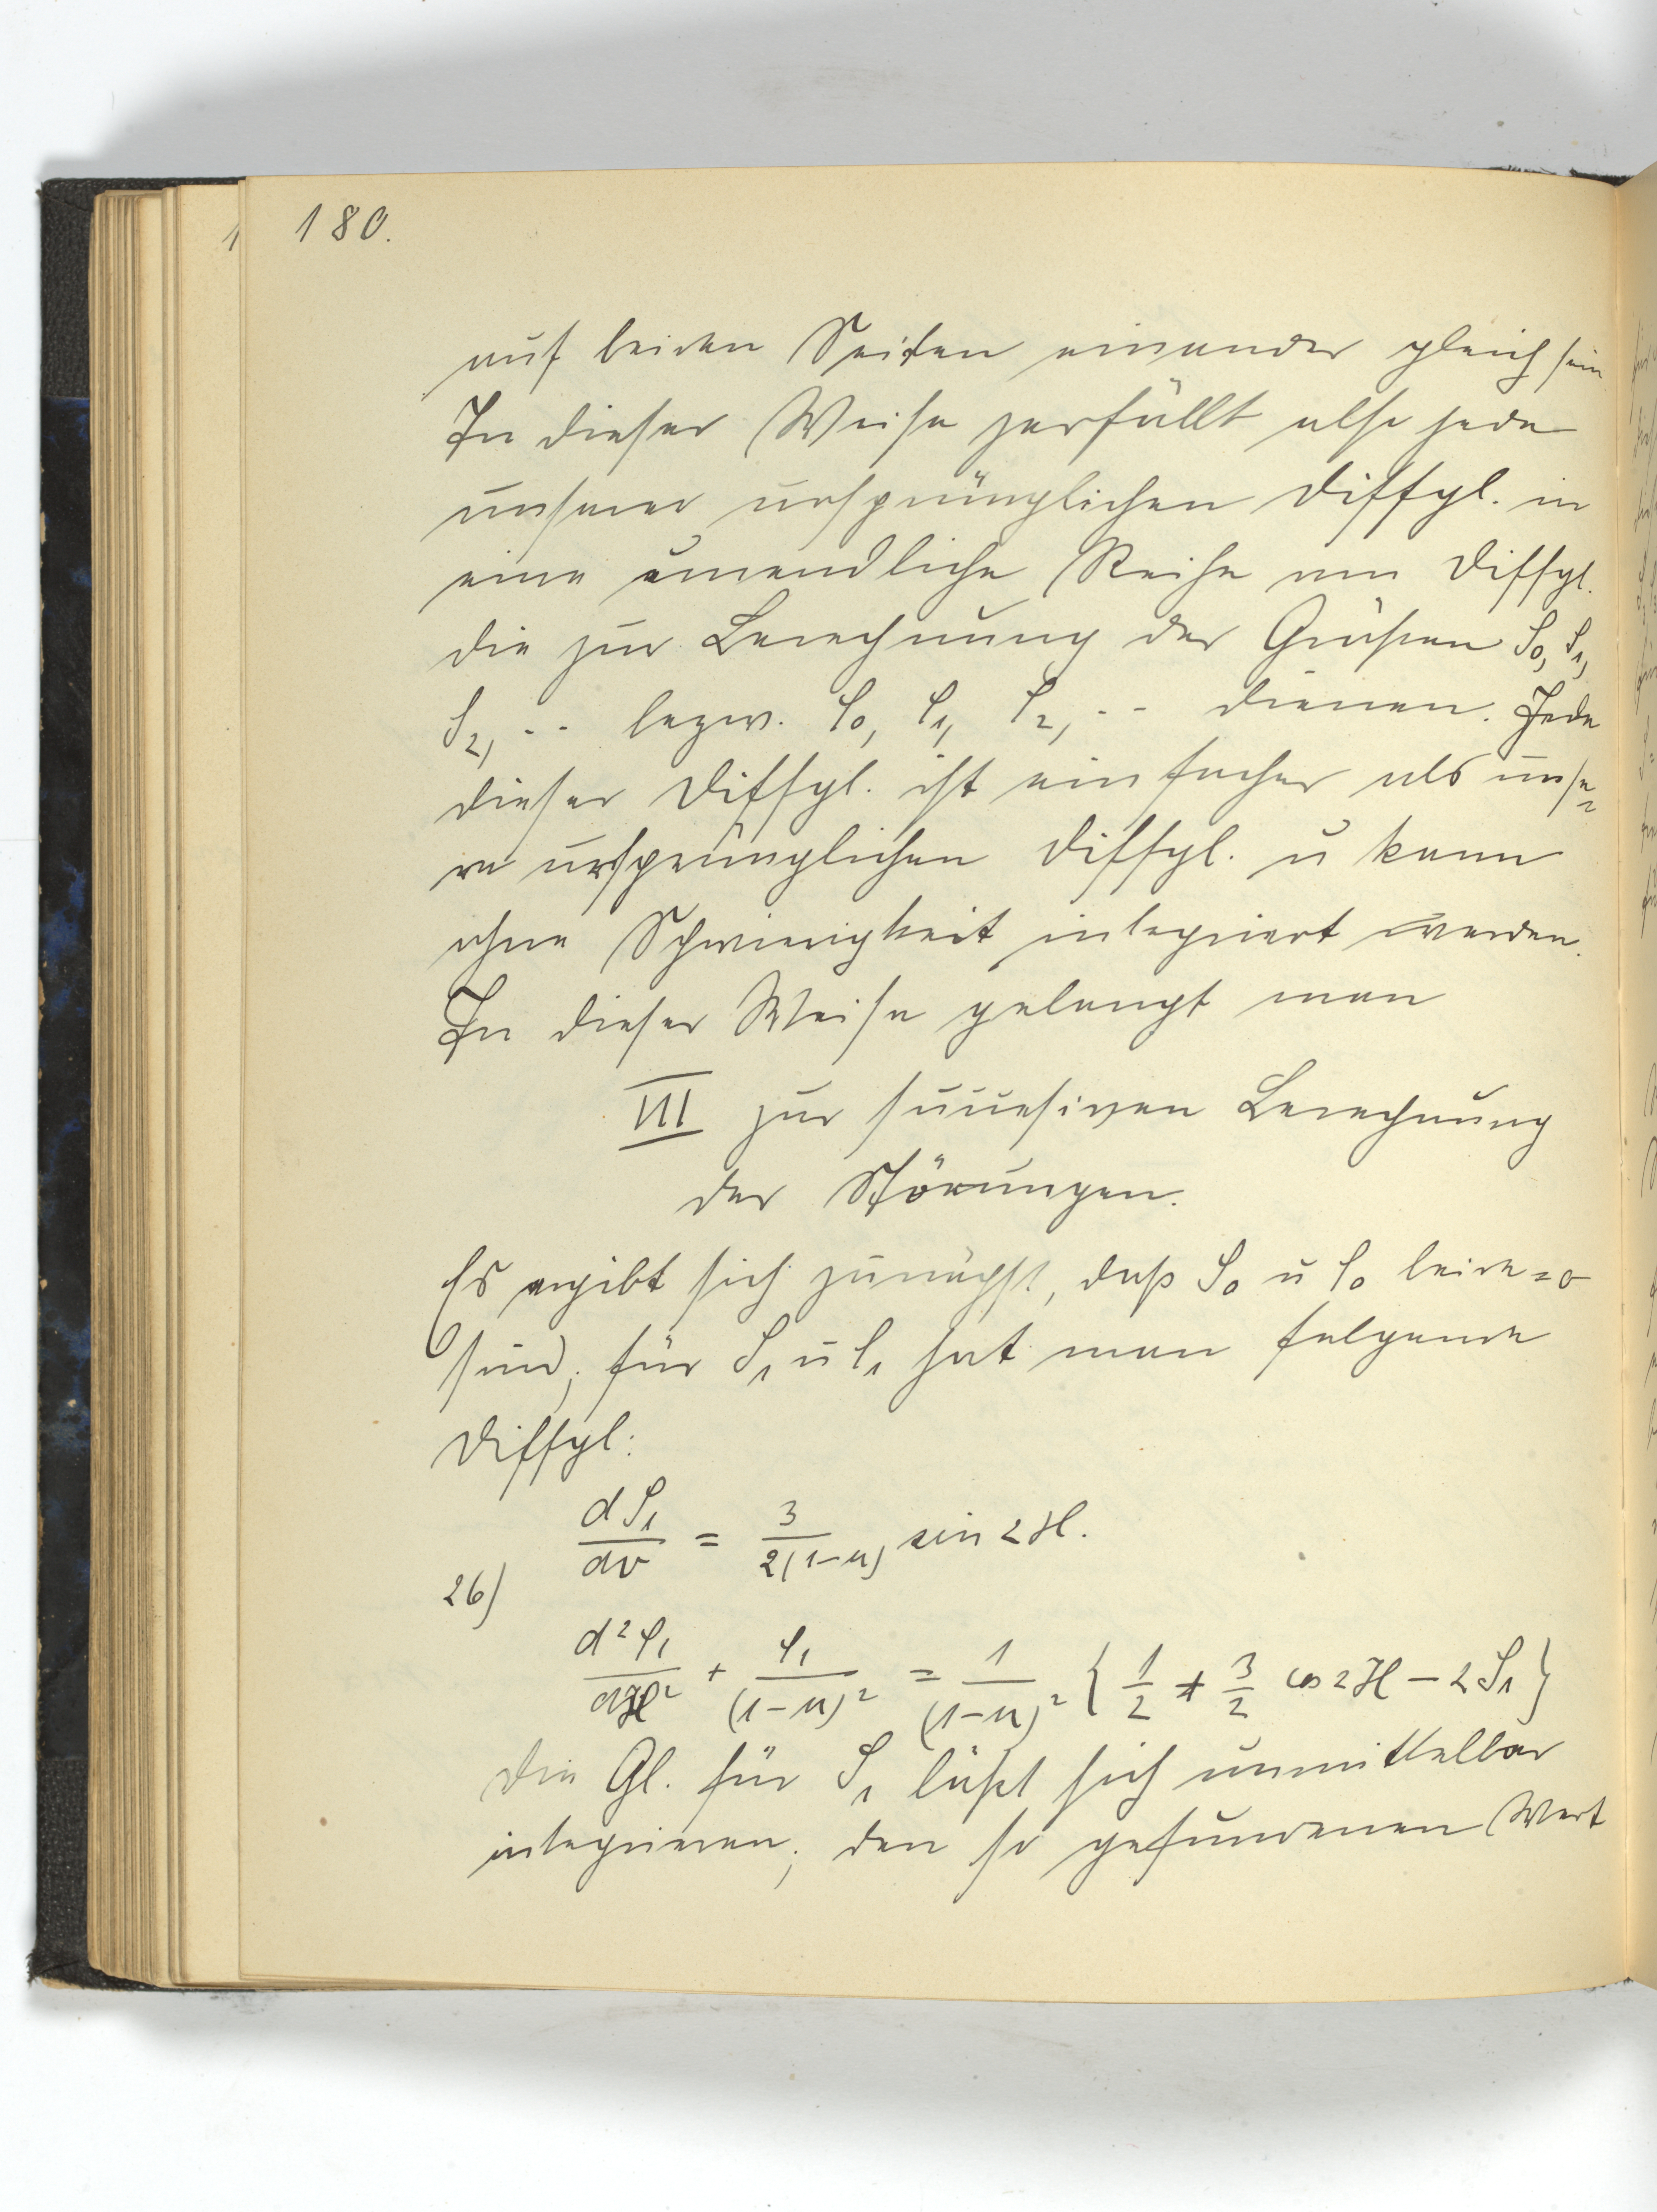 180.
auf beiden Seiten einander gleich sein
In dieser Weise zerfällt also jede
unserer ursprünglichen Diffgl. in
eine unendliche Reihe von Diffgl.
die zur Berechnung der Größen S₀, S₁,
S₂, .. bezw. ρ₀, ρ₁, ρ₂, .. dienen. Jede
dieser Diffgl. ist einfacher als unse=
re ursprünglichen Diffgl. u kann
ohne Schwierigkeit integriert werden.
In dieser Weise gelangt man
VII zur succesiven Berechnung
der Störungen.
Es ergibt sich zunächst, daß S₀ u ρ₀ beide = 0
sind; für S₁ u ρ₁ hat man folgende
Diffgl:
dS₁/dv = 3/2(1-μ) sin 2H.
26)
d²ρ₁/dH² + ρ₁/(1-μ)² = 1/(1-μ)² {1/2 + 3/2 cos 2H - 2S₁}
Die Gl. für S₁ läßt sich unmittelbar
integrieren; den so gefundenen Wert